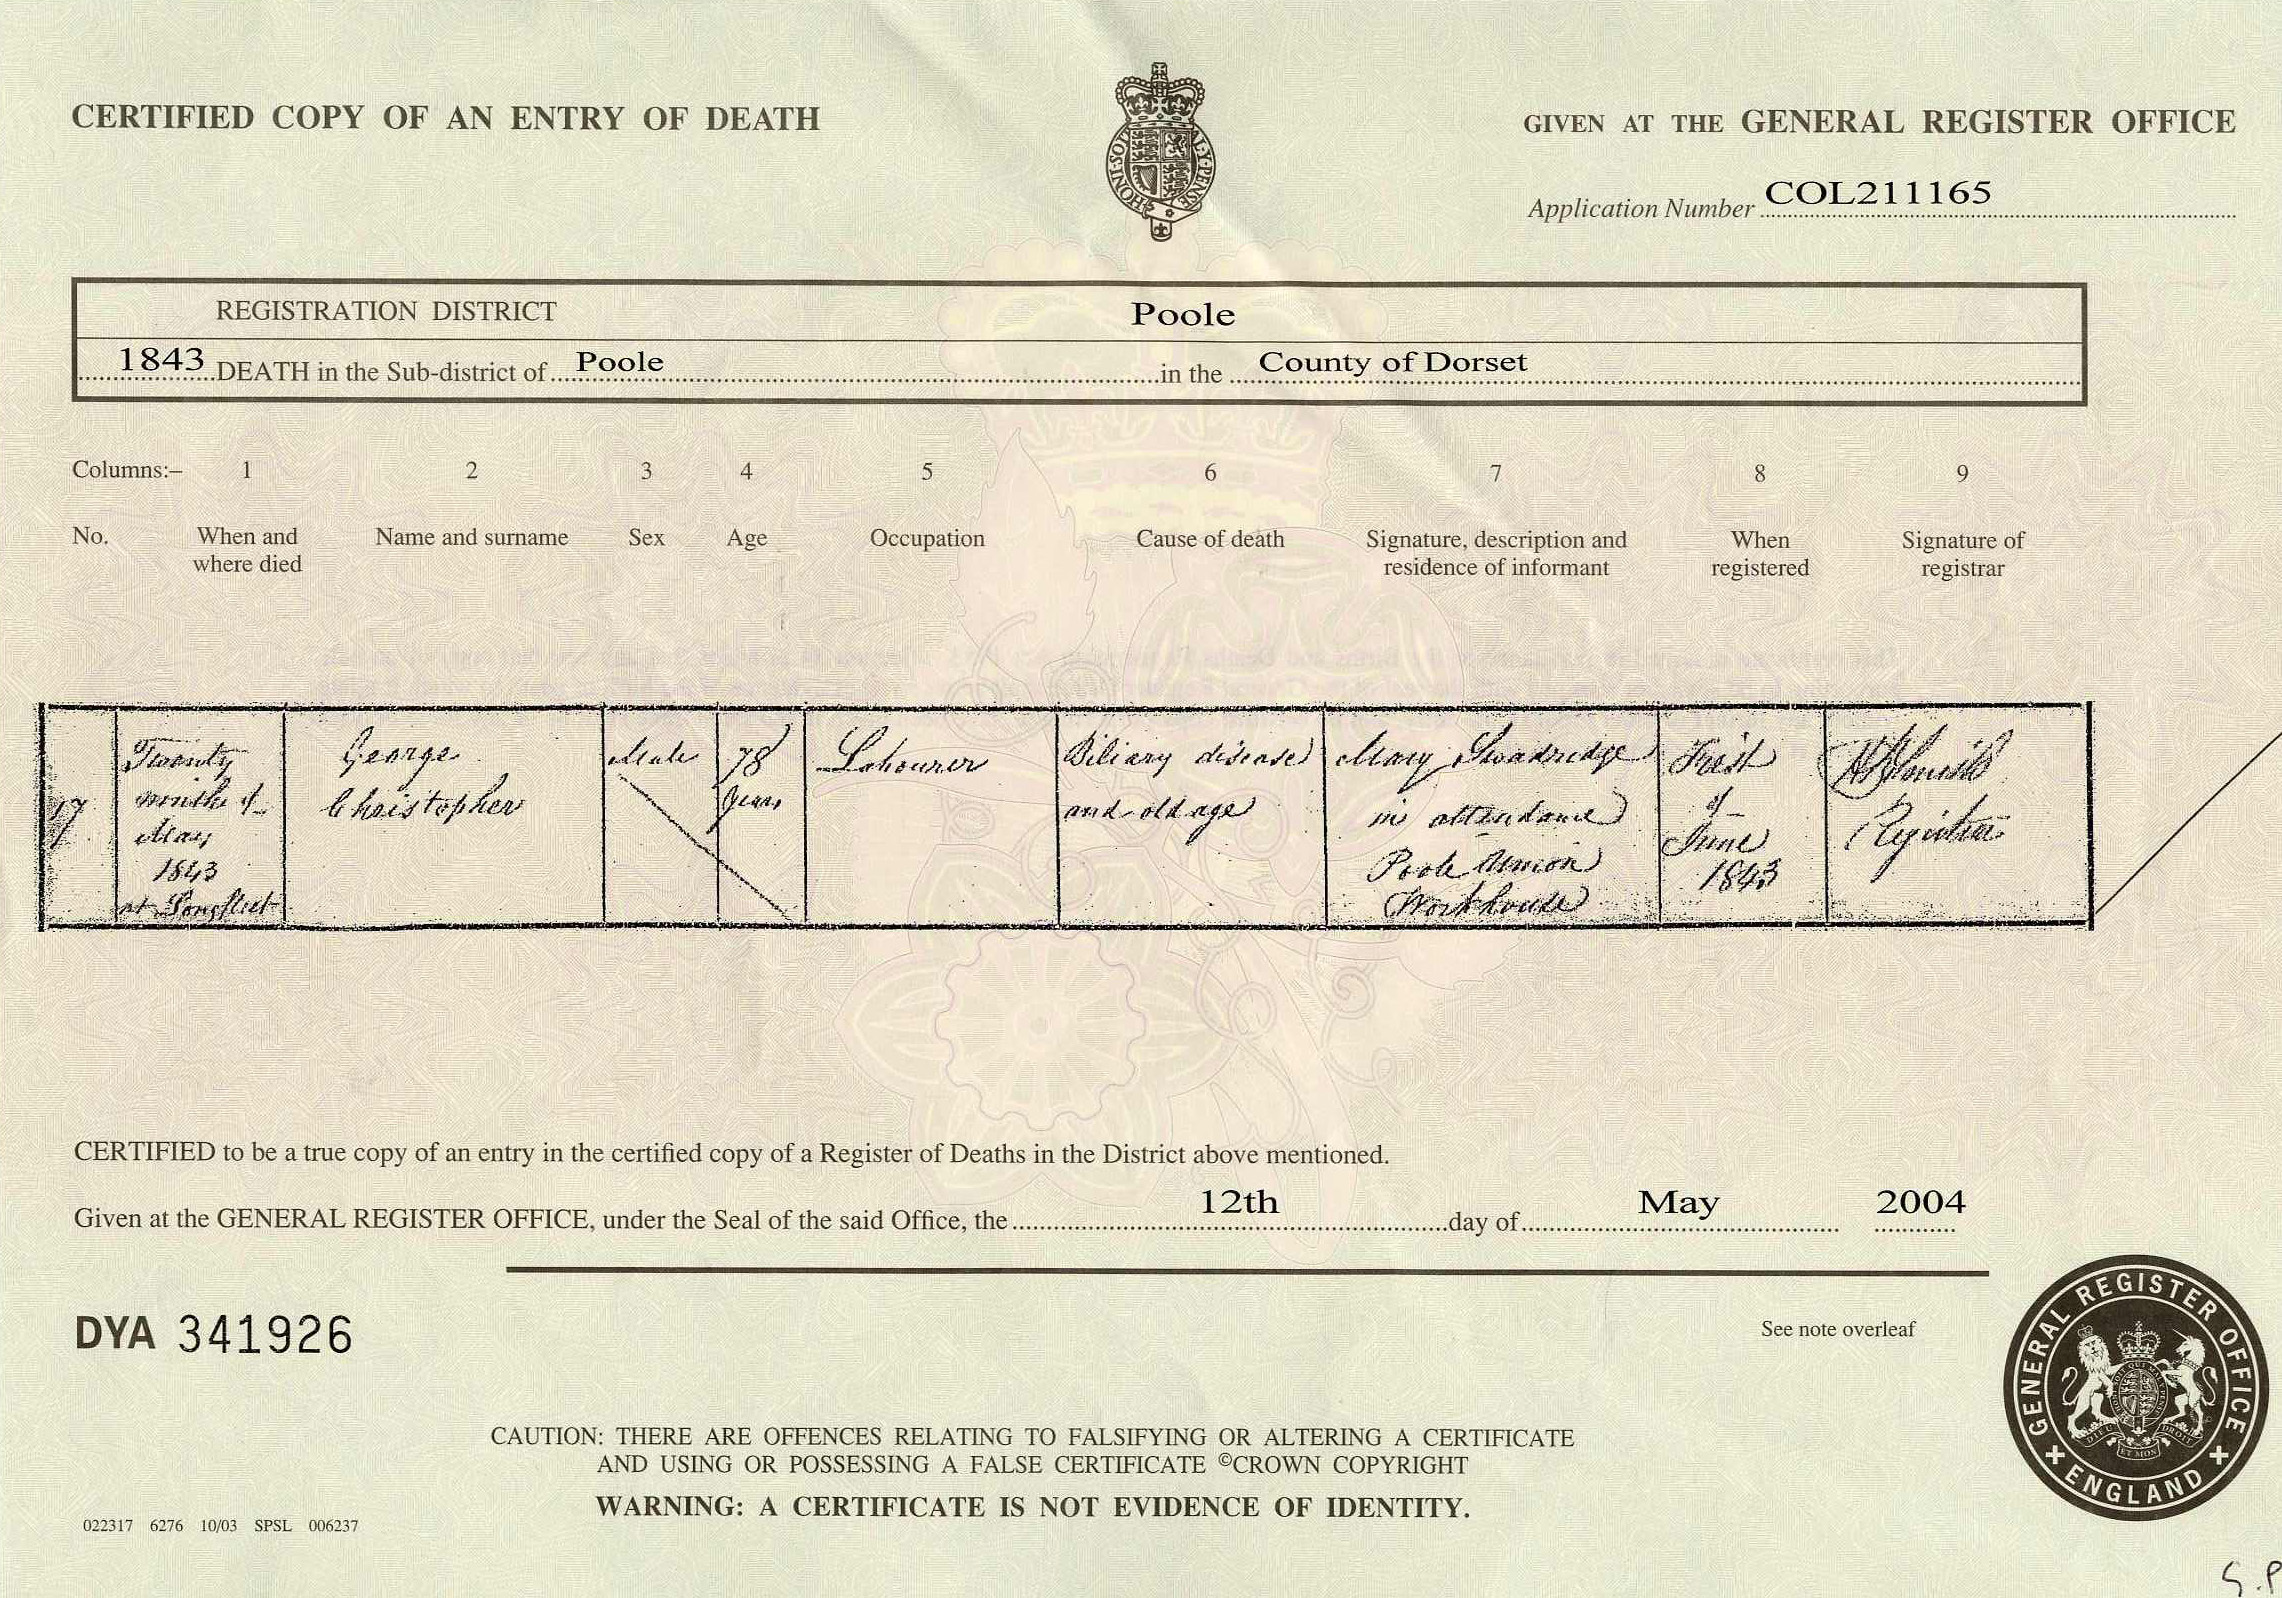 CERTIFIED COPY OF AN ENTRY OF DEATH
GIVEN AT THE GENERAL REGISTER OFFICE
HONI SOI
MAL Y PENSE
Application Number COL211165
REGISTRATION DISTRICT Poole
1843 DEATH in the Sub-district of Poole in the County of Dorset
Columns:– 1 2 3 4 5 6 7 8 9
No.
When and
where died
Name and surname
Sex
Age
Occupation
Cause of death
Signature, description and
residence of informant
When
registered
Signature of
registrar
Twenty
ninth of
May
1843
at Longfleet
George
Christopher
Male
78
Years
Labourer
Biliary disease
and old age
Mary Swadridge
in attendance
Poole Union
Workhouse
First
of
June
1843
Registrar
CERTIFIED to be a true copy of an entry in the certified copy of a Register of Deaths in the District above mentioned.
Given at the GENERAL REGISTER OFFICE, under the Seal of the said Office, the 12th day of May 2004
DYA 341926
See note overleaf
GENERAL REGISTER OFFICE
ENGLAND
CAUTION: THERE ARE OFFENCES RELATING TO FALSIFYING OR ALTERING A CERTIFICATE
AND USING OR POSSESSING A FALSE CERTIFICATE ©CROWN COPYRIGHT
WARNING: A CERTIFICATE IS NOT EVIDENCE OF IDENTITY.
022317 6276 10/03 SPSL 006237
S.P